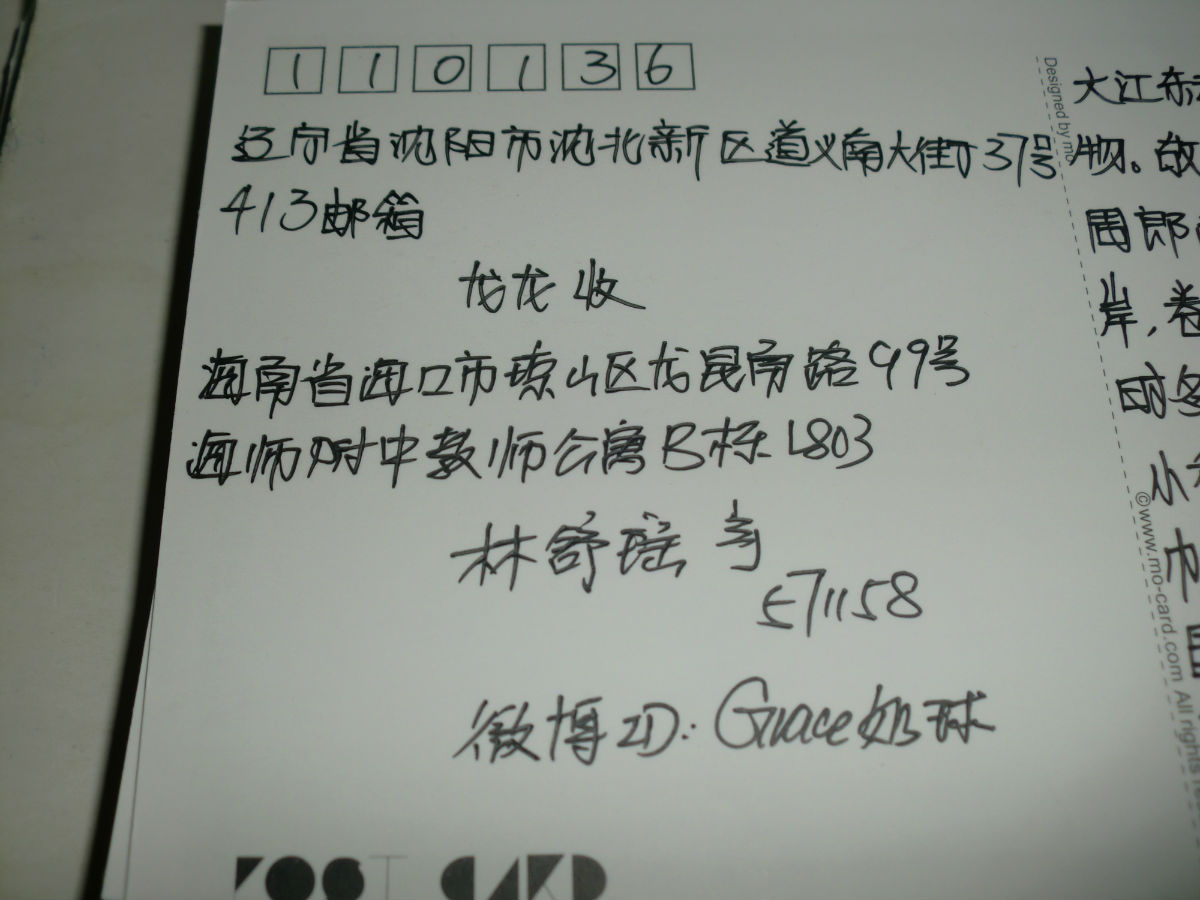 110136
辽宁省沈阳市沈北新区道义南大街37号
413邮箱
龙龙 收
海南省海口市琼山区龙昆南路99号
海师附中教师公寓B栋1803
林舒瑶 寄
571158
微博ID: Grace奶球
POST CARD
Designed by mo
©www.mo-card.com All rights
大江东
物。故
周郎
岸,卷
时多
小